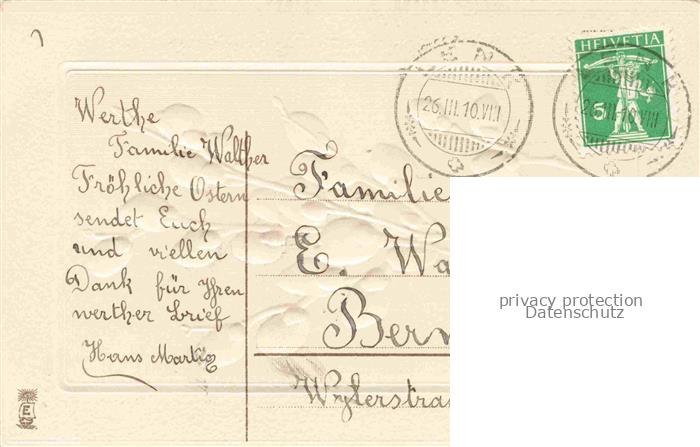 HELVETIA
5
26.III.10.VIII
Werthe
Familie Walther
Fröhliche Ostern
sendet Euch
und viellen
Dank für Ihren
werther Brief
Hans Martig
Familie
E. Wa
Bern
Wylerstra
privacy protection
Datenschutz
E